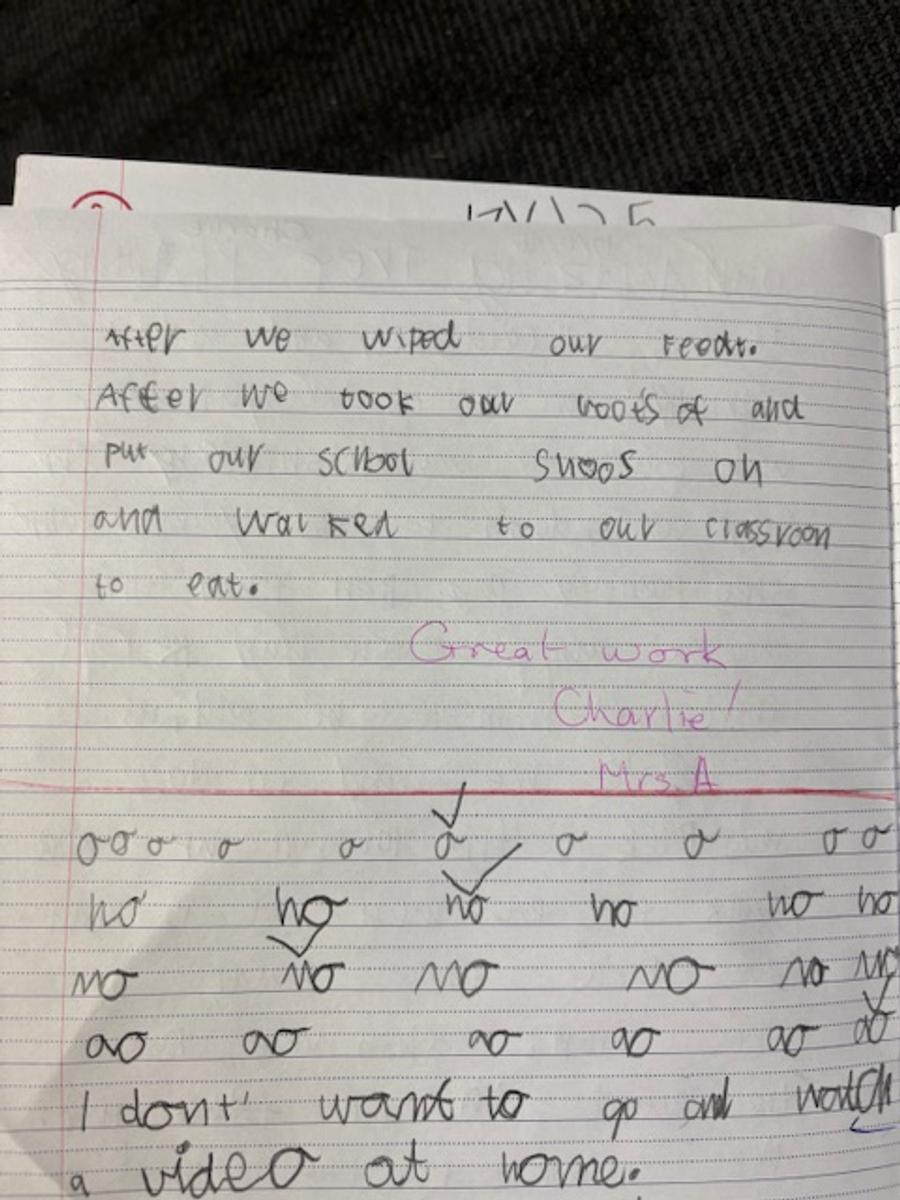 After we wiped our feedt.
After we took our boots of and
put our school shoos on
and walked to our classroon
to eat.
Great work
Charlie!
Mrs. A
o o o o o o o o o o
no no no no no no
no no no no no no
ao ao ao ao ao ao
I dont' want to go and watch
a video at home.